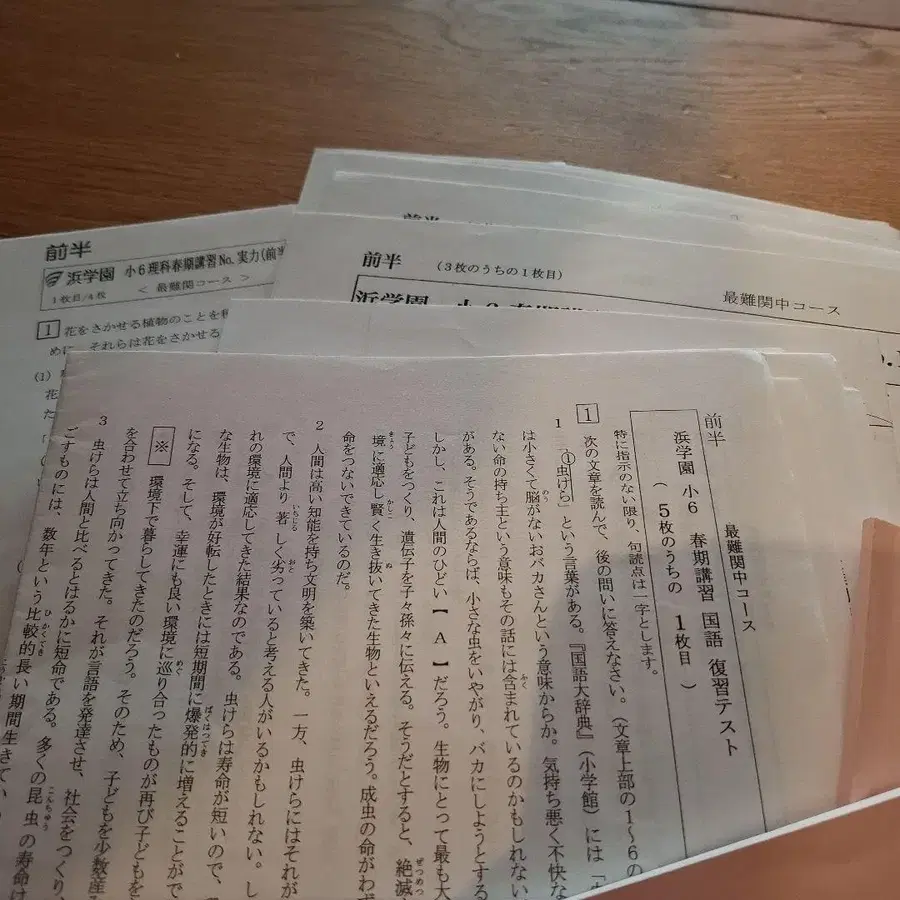 前半
浜学園 小6理科春期講習No.実力(前半
1枚目/4枚 < 最難関コース >
1 花をさかせる植物のことを
めに、それらは花をさかせる
(1)
花
た
前半
前半 (3枚のうちの1枚目)
最難関中コース
浜学園 小6
最難関中コース
前半
浜学園 小6 春期講習 国語 復習テスト
( 5枚のうちの 1枚目 )
特に指示のない限り、句読点は一字とします。
1 次の文章を読んで、後の問いに答えなさい。(文章上部の1~6の
1 「①虫けら」という言葉がある。『国語大辞典』(小学館)には「
は小さくて脳がないおバカさんという意味からか。気持ち悪く不快な
ない命の持ち主という意味もその話には含まれているのかもしれない
がある。そうであるならば、小さな虫をいやがり、バカにしようとする
しかし、これは人間のひどい【 A 】だろう。生物にとって最も大
子どもをつくり、遺伝子を子々孫々に伝える。そうだとすると、絶滅
境に適応し賢く生き抜いてきた生物といえるだろう。成虫の命がわず
命をつないできているのだ。
2 人間は高い知能を持ち文明を築いてきた。一方、虫けらにはそれが
で、人間より著しく劣っていると考える人がいるかもしれない。し
れの環境に適応してきた結果なのである。虫けらは寿命が短いので、
な生物は、環境が好転したときには短期間に爆発的に増えることがで
になる。そして、幸運にも良い環境に巡り合ったものが再び子どもを
※ 環境下で暮らしてきたのだろう。そのため、子どもを少数産
を合わせて立ち向かってきた。それが言語を発達させ、社会をつくり、
3 虫けらは人間と比べるとはるかに短命である。多くの昆虫の寿命は
ごすものには、数年という比較的長い期間生きてい